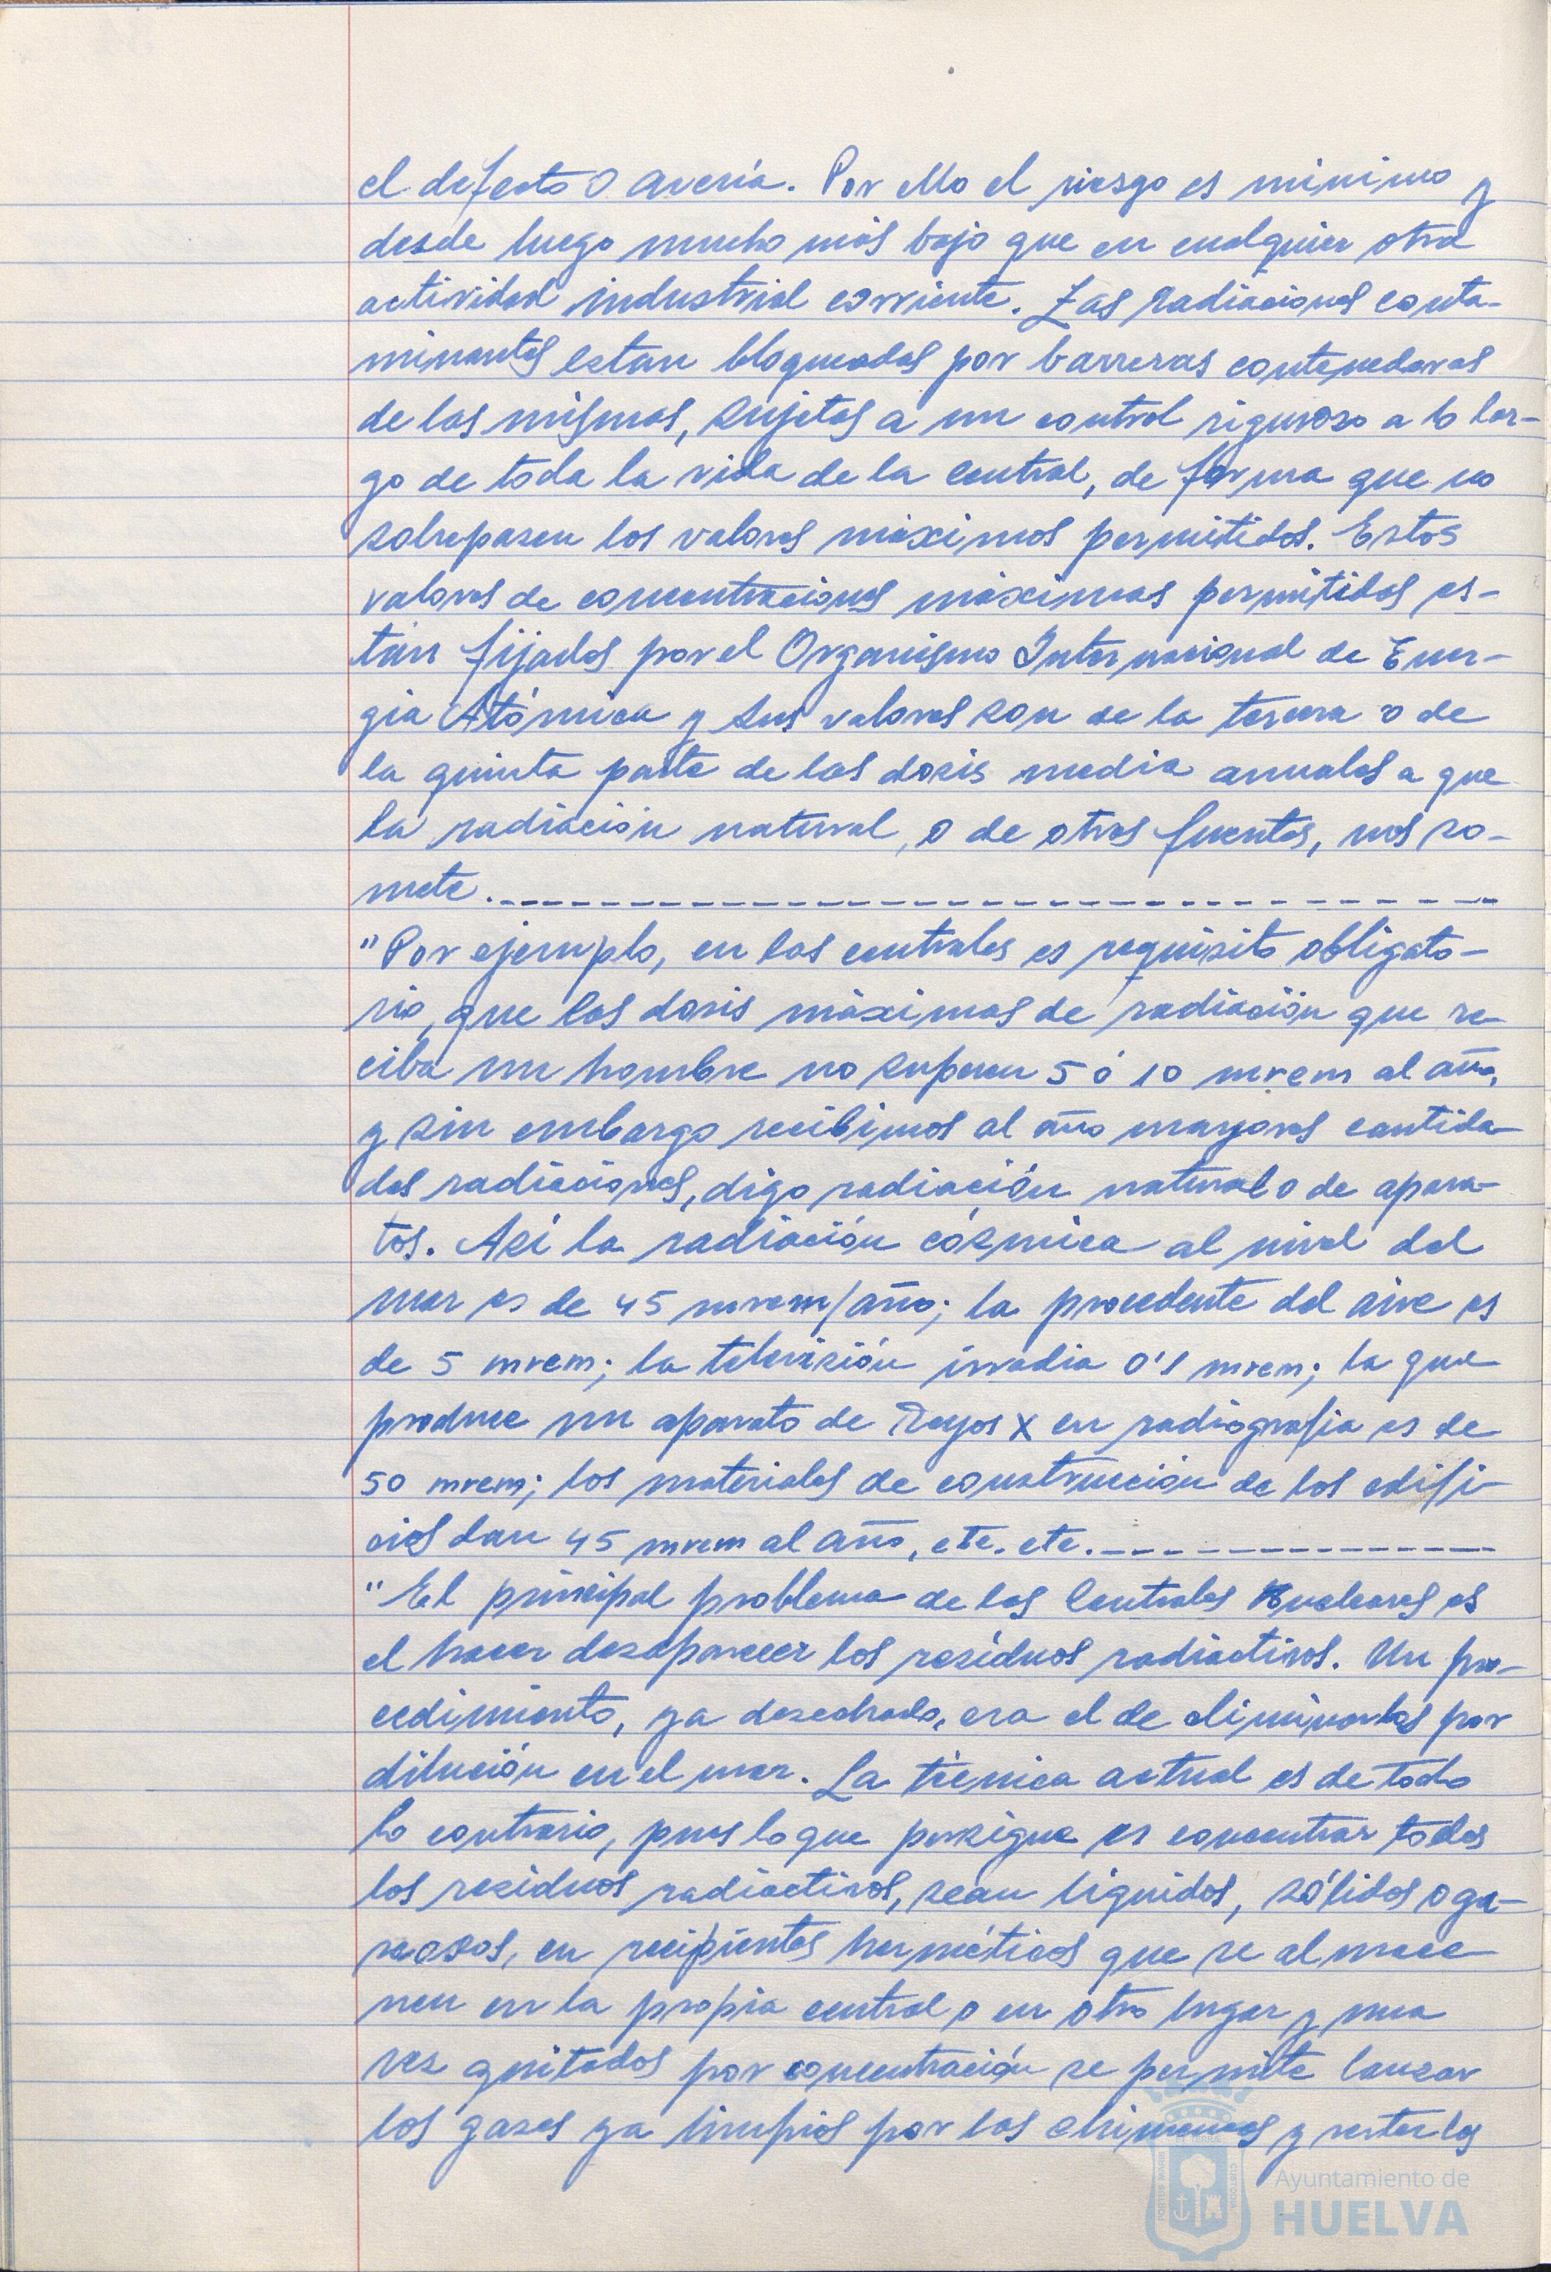 el defecto o avería. Por ello el riesgo es mínimo y
desde luego mucho más bajo que en cualquier otra
actividad industrial corriente. Las radiaciones conta-
minantes estan bloqueadas por barreras contenedoras
de las mismas, sujetas a un control riguroso a lo lar-
go de toda la vida de la central, de forma que no
sobrepasen los valores máximos permitidos. Estos
valores de concentraciones máximas permitidas es-
tán fijados por el Organismo Internacional de Ener-
gia Atómica y sus valores son de la tercera o de
la quinta parte de las dosis media anuales a que
la radiación natural, o de otras fuentes, nos so-
mete.
"Por ejemplo, en las centrales es requisito obligato-
rio, que las dosis máximas de radiación que re-
ciba un hombre no superen 5 ó 10 mrem al año,
y sin embargo recibimos al año mayores cantida-
des radiaciones, digo radiación natural o de apara-
tos. Así la radiación cósmica al nivel del
mar es de 45 mrem/año; la procedente del aire es
de 5 mrem; la televisión irradia 0'1 mrem; la que
produce un aparato de Rayos X en radiografia es de
50 mrem; los materiales de construcción de los edifi-
cios dan 45 mrem al año, etc. etc.
"El principal problema de las Centrales Nucleares es
el hacer desaparecer los residuos radiactivos. Un pro-
cedimiento, ya desechado, era el de eliminarlos por
dilución en el mar. La técnica actual es de todo
lo contrario, pues lo que persigue es concentrar todos
los residuos radiactivos, sean líquidos, sólidos o ga-
seosos, en recipientes herméticos que se almace-
nen en la propia central o en otro lugar y una
vez quitados por concentración se permite lanzar
los gases ya limpios por las chimeneas y verter los
Ayuntamiento de
HUELVA